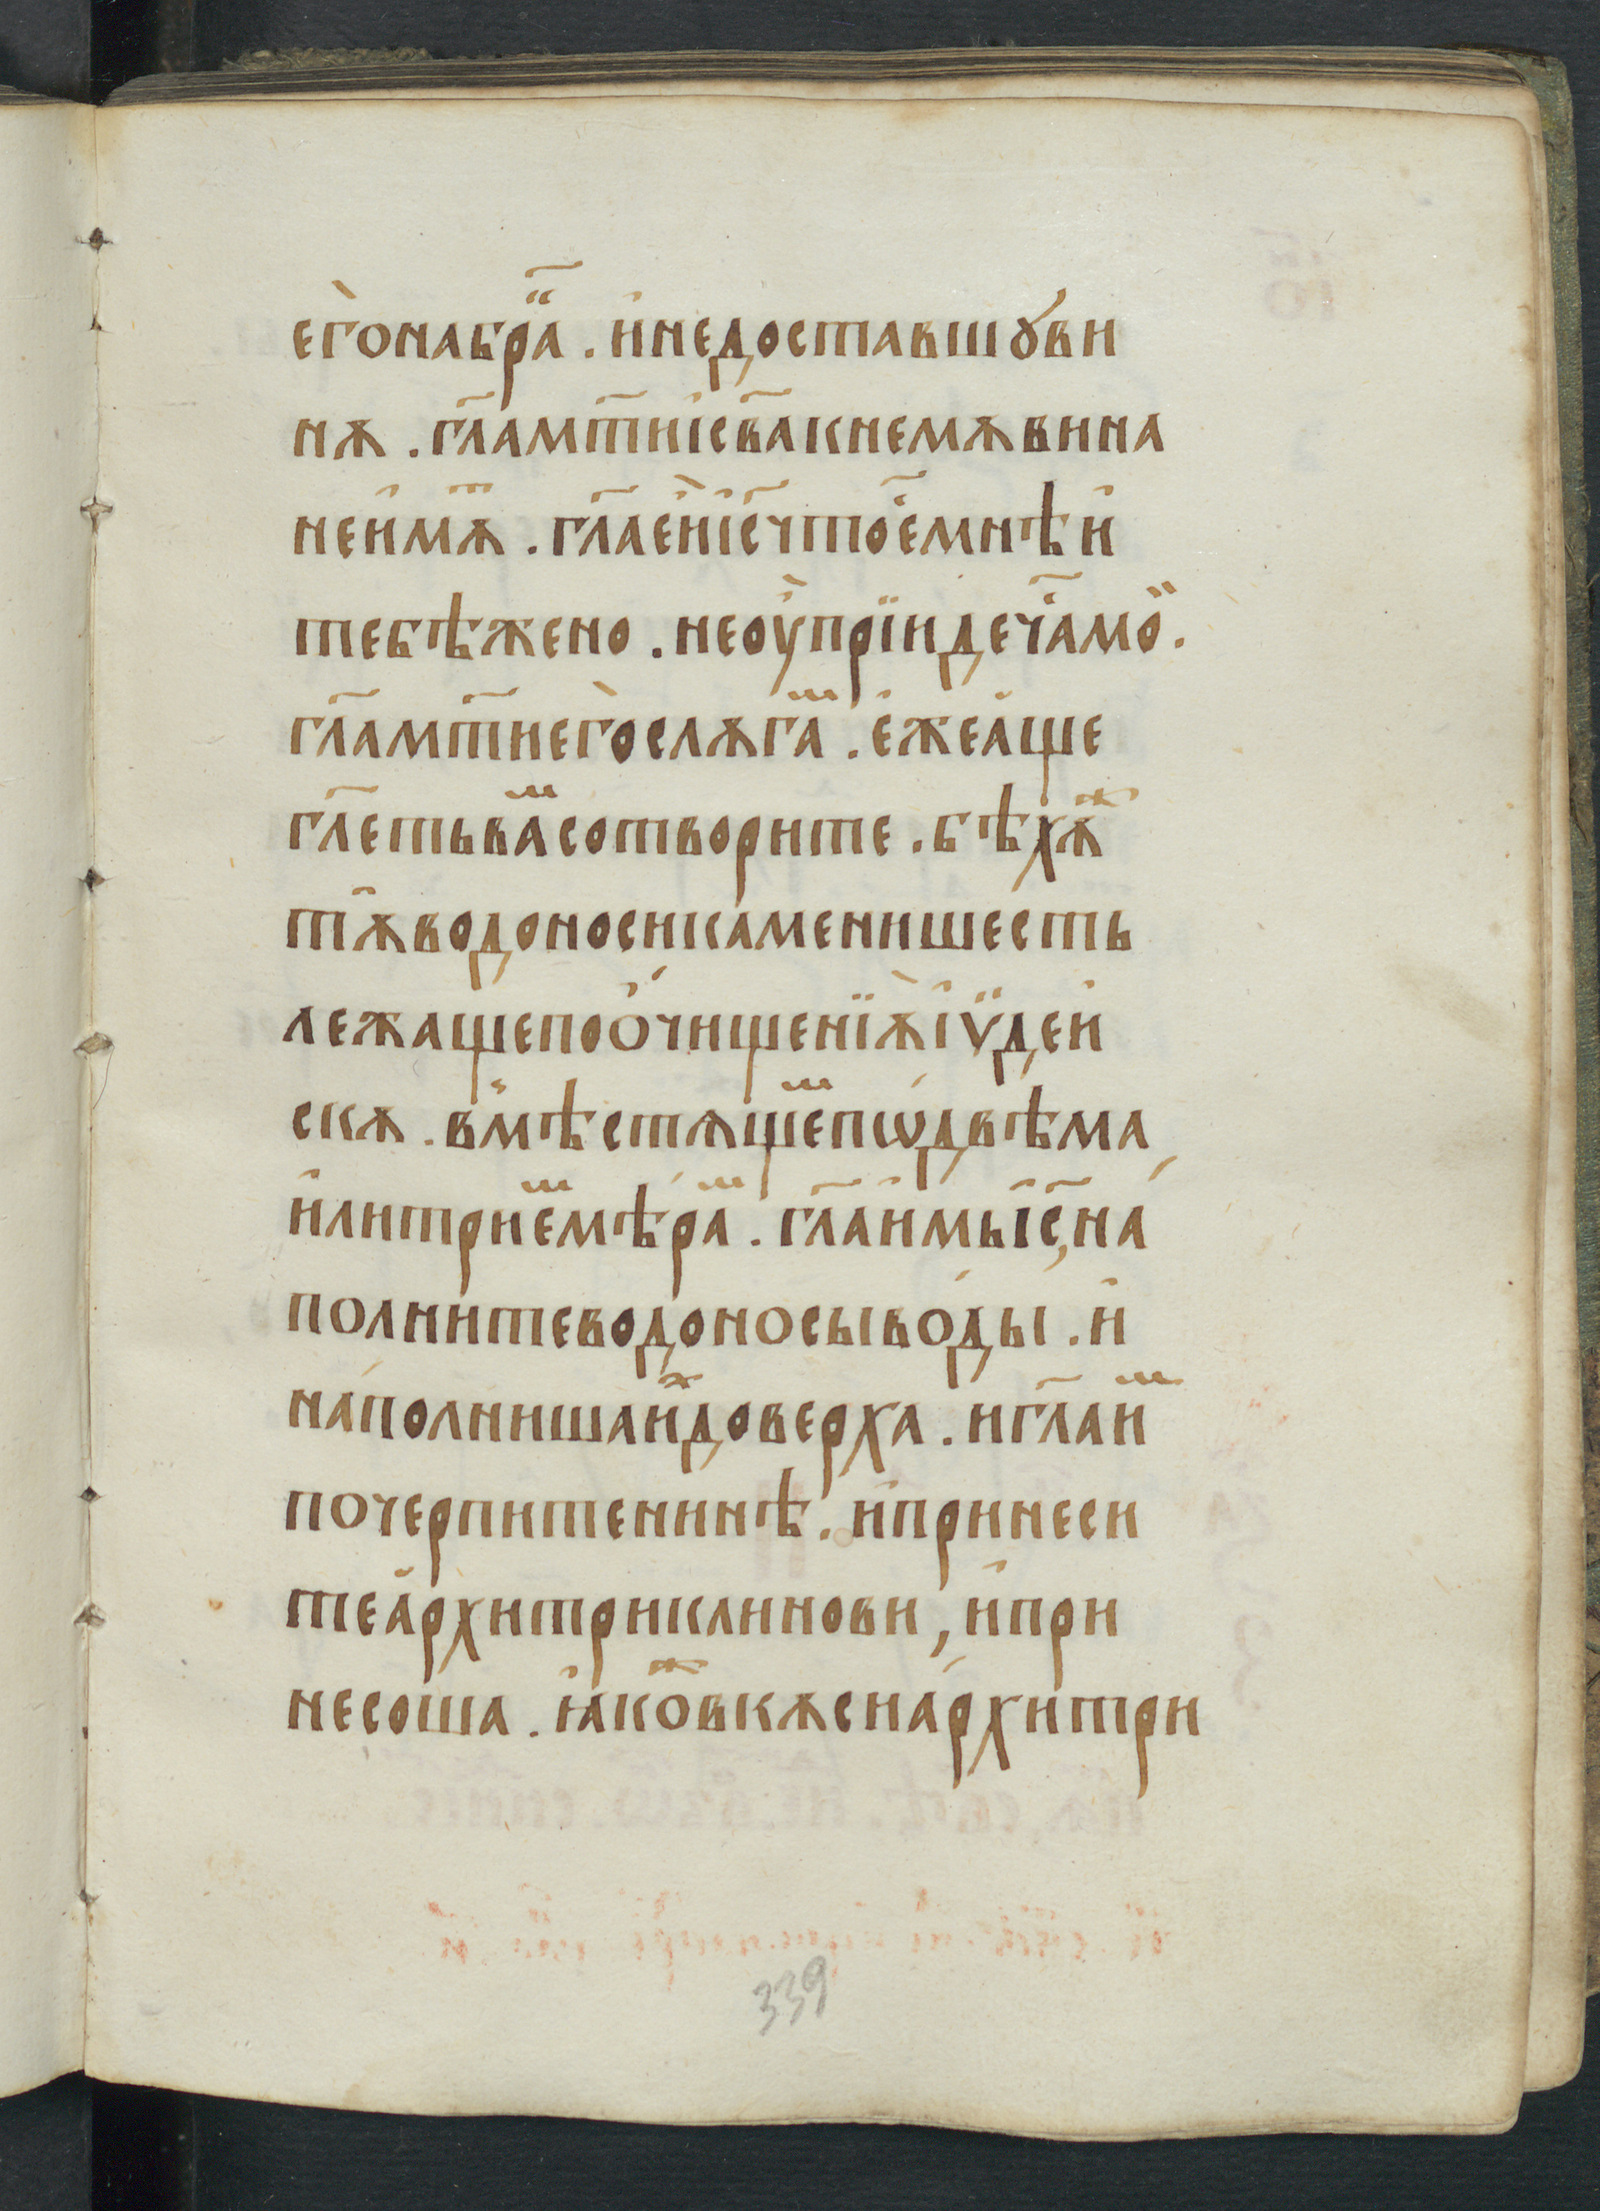 е҆гонабра҃к . и҆недоставшꙋви
нѫ . гл҃амт҃иі҃сваꙗкнемѫвина
неи҆мѫⷮ . гл҃ае҆ⷩ҇иі҃счтое҆ⷭ҇мнѣи҆
тебѣжено . неоу҆прїидечⷭ҇амо́й .
гл҃амт҃иего̀слѫгаⷨ . е҆жеа҆ще
гл҃етьваⷨсотворите . бѣхѫⷤ
тꙋ҆водоносикаменишесть
лежащепоо҆чищенїѫі҆ꙋ҆дей
скꙋ . вмѣстѧщеⷨпѡ́двѣма
и҆литриеⷨмѣраⷨ . гл҃аи҆мъі҃с, на́
полнитеводоносыво́ды . и҆
на́полнишаи҆ⷯдоверха . игл҃аиⷨ
почерпитенинѣ . и҆принеси
теа҆рхитриклинови , и҆при
несоша . ꙗ҆коⷤвкѫсиа́рхитри
339